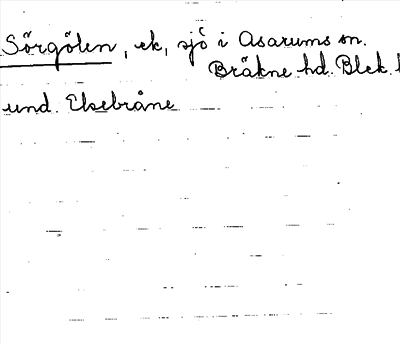 Sörgölen, ek, sjö i Asarums sn.
Bräkne hd. Blek.
und. Elsebråne